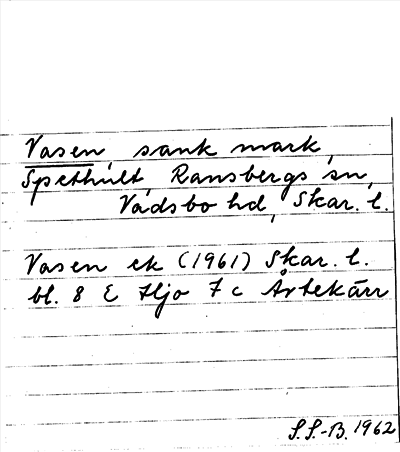 Vasen, sank mark,
Spethult, Ransbergs sn,
Vadsbo hd, Skar. l.
Vasen ek (1961) Skar. l.
bl. 8 E Hjo 7 c Årtekärr
S.S.-B. 1962